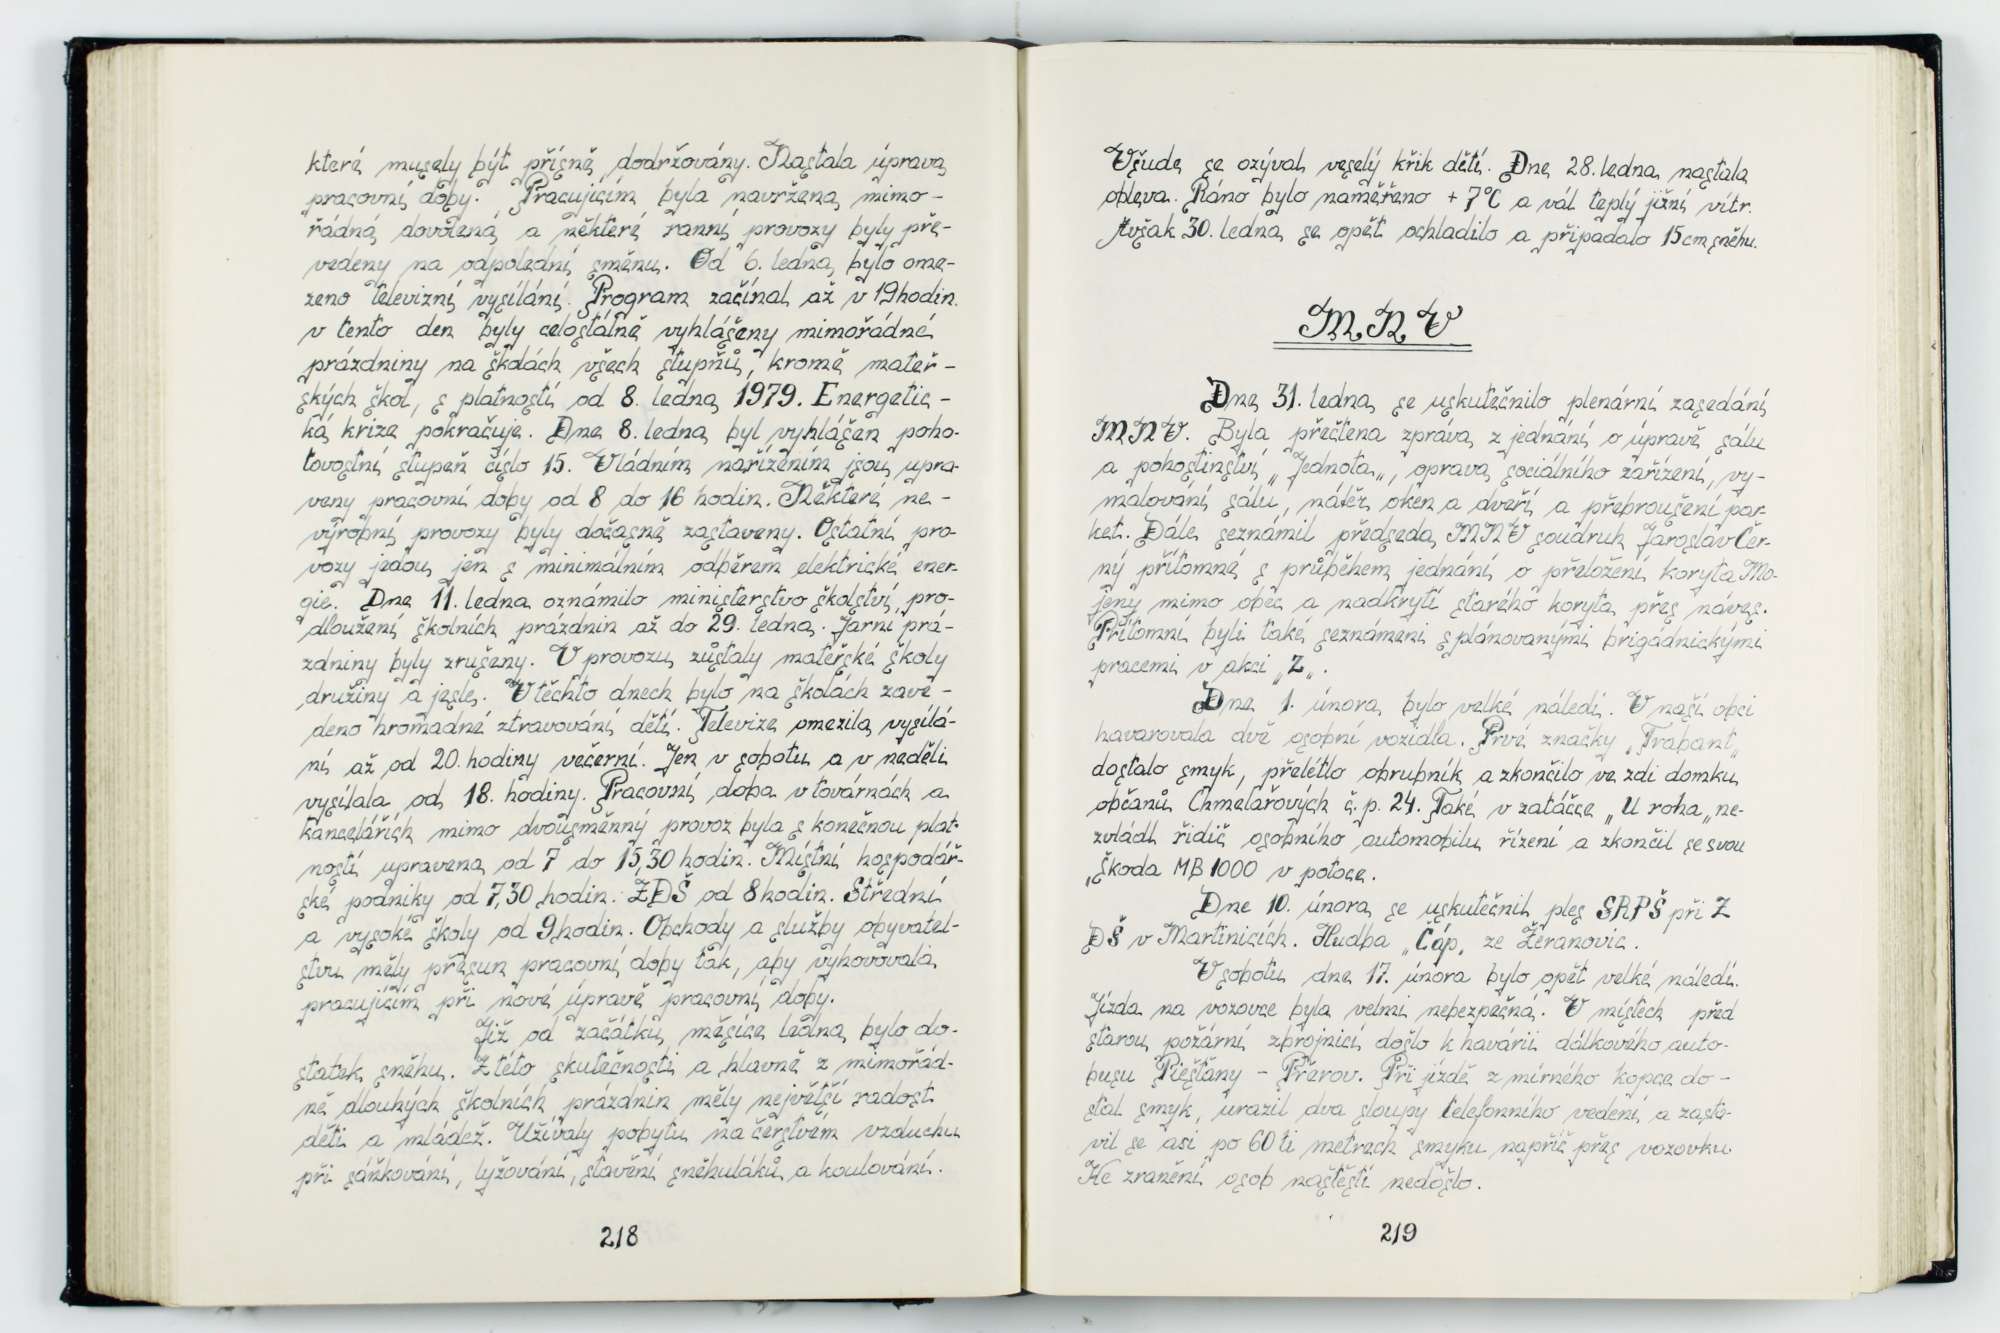 které musely být přísně dodržovány. Nastala úprava
pracovní doby. Pracujícím byla navržena mimo-
řádná dovolená a některé ranní provozy byly pře-
vedeny na odpolední směnu. Od 6. ledna bylo ome-
zeno televizní vysílání. Program začínal až v 19 hodin.
v tento den byly celostátně vyhlášeny mimořádné
prázdniny na školách všech stupňů, kromě mateř-
ských škol, s platností od 8. ledna 1979. Energetic-
ká krize pokračuje. Dne 8. ledna byl vyhlášen poho-
tovostní stupeň číslo 15. Vládním nařízením jsou upra-
veny pracovní doby od 8 do 16 hodin. Některé ne-
výrobní provozy byly dočasně zastaveny. Ostatní pro-
vozy jedou jen s minimálním odběrem elektrické ener-
gie. Dne 11. ledna oznámilo ministerstvo školství pro-
dloužení školních prázdnin až do 29. ledna. Jarní prá-
zdniny byly zrušeny. V provozu zůstaly mateřské školy
družiny a jesle. V těchto dnech bylo na školách zave-
deno hromadné ztravování dětí. Televize omezila vysílá-
ní až od 20. hodiny večerní. Jen v sobotu a v neděli
vysílala od 18. hodiny. Pracovní doba v továrnách a
kancelářích mimo dvousměnný provoz byla s konečnou plat-
ností upravena od 7 do 15,30 hodin. Místní hospodář-
ské podniky od 7,30 hodin. ZDŠ od 8 hodin. Střední
a vysoké školy od 9 hodin. Obchody a služby obyvatel-
stvu měly přesun pracovní doby tak, aby vyhovovala
pracujícím při nové úpravě pracovní doby.
Již od začátku měsíce ledna bylo do-
statek sněhu. Z této skutečnosti a hlavně z mimořád-
ně dlouhých školních prázdnin měly největší radost
děti a mládež. Užívaly pobytu na čerstvém vzduchu
při sáňkování, lyžování, stavění sněhuláků a koulování.
218
Všude se ozýval veselý křik dětí. Dne 28. ledna nastala
obleva. Ráno bylo naměřeno +7°C a vál teplý jižní vítr.
Avšak 30. ledna se opět ochladilo a připadalo 15 cm sněhu.
M.N.V
Dne 31. ledna se uskutečnilo plenární zasedání
MNV. Byla přečtena zpráva z jednání o úpravě sálu
a pohostinství „Jednota„, oprava sociálního zařízení, vy-
malování sálu, nátěr oken a dveří a přebroušení par-
ket. Dále seznámil předseda MNV soudruh Jaroslav Čer-
ný přítomné s průběhem jednání o přeložení koryta Mo-
jeny mimo obec a nadkrytí starého koryta přes náves.
Přítomní byli také seznámeni s plánovanými brigádnickými
pracemi v akci „Z„.
Dne 1. února bylo velké náledí. V naší obci
havarovala dvě osobní vozidla. Prvé značky „Trabant„
dostalo smyk, přelétlo obrubník a zkončilo ve zdi domku
občanů Chmelařových č.p. 24. Také v zatáčce „U roha„ ne-
zvládl řidič osobního automobilu řízení a zkončil se svou
„Škoda MB 1000 v potoce.
Dne 10. února se uskutečnil ples SRPŠ při Z
DŠ v Martinicích. Hudba „Čáp„ ze Žeranovic.
V sobotu dne 17. února bylo opět velké náledí.
Jízda na vozovce byla velmi nebezpečná. V místech před
starou požární zbrojnicí došlo k havárii dálkového auto-
busu Piešťány - Přerov. Při jízdě z mírného kopce do-
stal smyk, urazil dva sloupy telefonního vedení a zasta-
vil se asi po 60 ti metrech smyku napříč přes vozovku.
Ke zranění osob naštěstí nedošlo.
219